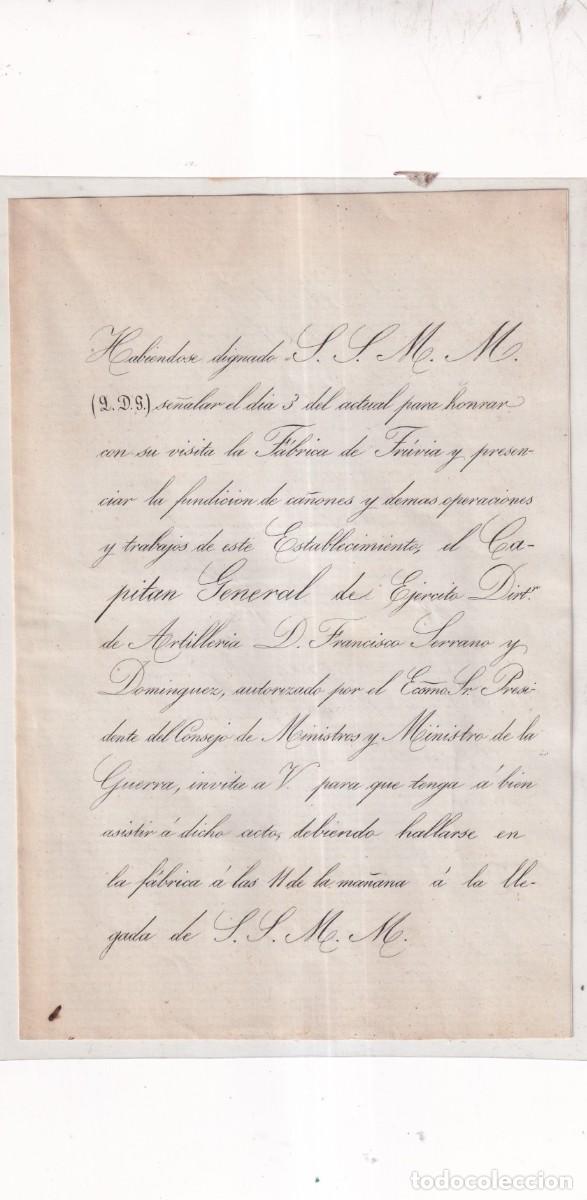 Habiéndose dignado S. S. M. M.
(Q.D.G.) señalar el dia 3 del actual para honrar
con su visita la Fábrica de Trúvia y presen-
ciar la fundicion de cañones y demas operaciones
y trabajos de este Establecimiento, el Ca-
pitan General de Ejército Dirtr.
de Artilleria D. Francisco Serrano y
Dominguez, autorizado por el Ecsmo. Sr. Presi-
dente del Consejo de Ministros y Ministro de la
Guerra, invita a V. para que tenga á bien
asistir á dicho acto, debiendo hallarse en
la fábrica á las 11 de la mañana á la lle-
gada de S. S. M. M.
todocoleccion